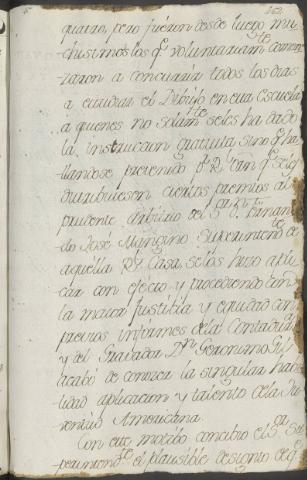 quatro, pero fuéron desde luego mu-
chisimos los qe. voluntariamte. comen
zaron a concurrir todos los dias
a estudiar el Dibujo en esta Escuela
a quienes no solamte. seles ha dado
la instruccion gratuita sino qe. ha-
llandose prevenido pr. R. que seles
distribuiesen ciertos premios al
prudente arbitrio del Sor. Dn. Fernan-
do José Mangino Superintente. de
aquélla Rl. Casa, selos hizo apli-
car con efecto, y procediendo con
la maior Justicia y equidad con
previos informes dela Contaduria
y el Gravador Dn. Geronimo Gil
acabó de conocer la singular havi
lidad aplicacion y talento dela Ju-
ventud Americana.
Con este motibo concibio el Sor. Su-
perintente. el plausible designio de qe.